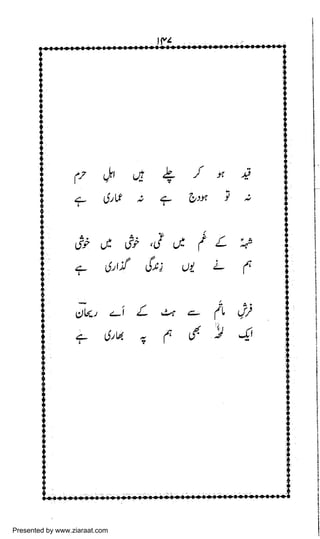 ۱۴۷
قید ہو کر چلے ہیں اہلِ حرم
نہ تو ہودج ہے نہ عماری ہے
شہؑ کے غم میں غمی، خوشی میں خوشی
ہم نے یوں زندگی گذاری ہے
فرشِ ماتم سے ہٹ کے اے ریحانؔ
ایک لمحہ بھی ہم پہ بھاری ہے
Presented by www.ziaraat.com